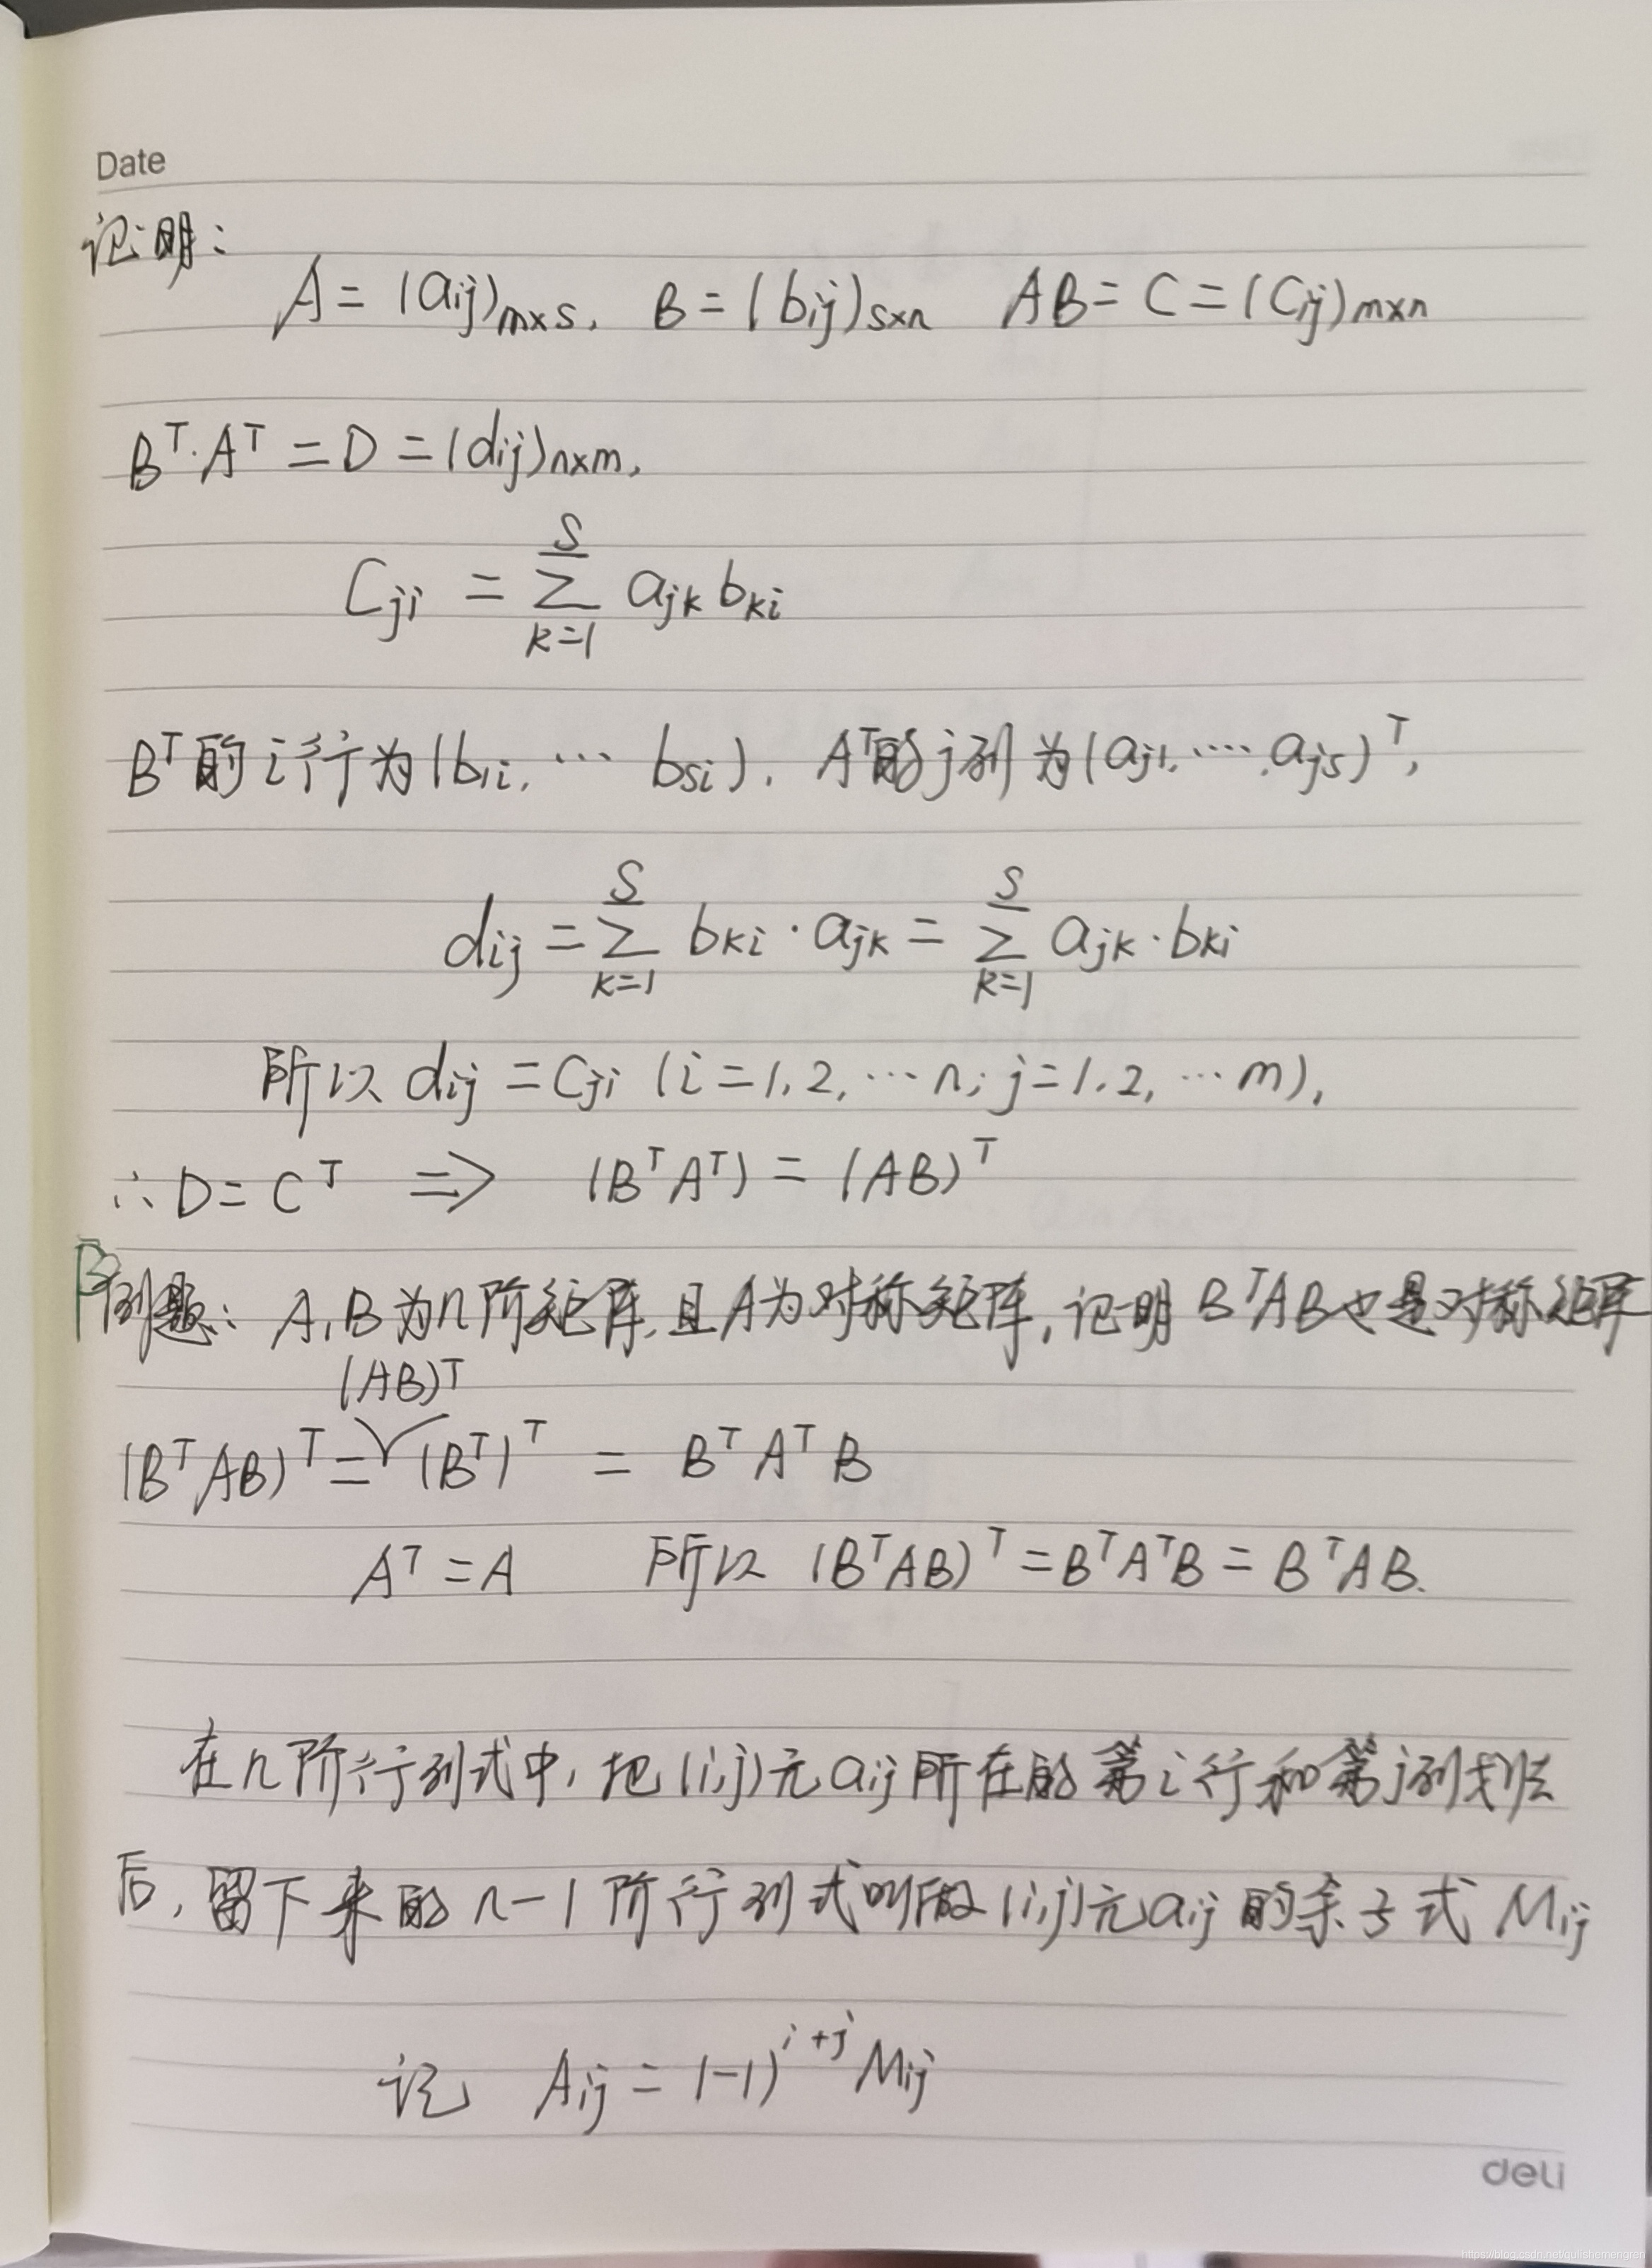 Date
记明:
A = (aij)m×s, B = (bij)s×n AB = C = (Cij)m×n
Bᵀ·Aᵀ = D = (dij)n×m,
S
Cji = Σ ajk bki
k=1
Bᵀ的i行为(b1i, … bsi), Aᵀ的j列为(aj1, …, ajs)ᵀ,
S S
dij = Σ bki·ajk = Σ ajk·bki
k=1 k=1
所以 dij = Cji (i=1,2,…n; j=1,2,…m),
∴ D = Cᵀ ⇒ (BᵀAᵀ) = (AB)ᵀ
例题: A,B为n阶矩阵,且A为对称矩阵,记明BᵀAB也是对称矩阵
(AB)ᵀ
(BᵀAB)ᵀ = (Bᵀ)ᵀ = BᵀAᵀB
Aᵀ = A 所以 (BᵀAB)ᵀ = BᵀAᵀB = BᵀAB.
在n阶行列式中,把(i,j)元aij所在的第i行和第j列划去
后,留下来的n-1阶行列式叫做(i,j)元aij的余子式Mij
记 Aij = (-1)^{i+j} Mij
deli